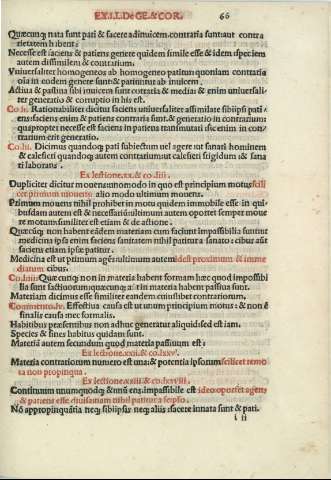 EX.I.L.De GE.& COR. 66
Quæcunq; nata sunt pati & facere adinuicem contraria sunt aut contra
rietatem habent:
Necesse est faciens & patiens genere quidem simile esse & idem specie
autem dissimilem & contrarium.
Vniuersaliter homogenetos ab homogeneo patitur quoniam contraria
oia in eodem genere sunt & patiuntur ab inuicem.
Actiua & passiua sibi inuicem sunt cotraria & media: & enim uniuersali-
ter generatio & corruptio in his est.
Rationabiliter dicitur faciens uniuersaliter assimilare sibiipsi pati-
ens: faciens enim & patiens contraria sunt. & generatio in contrarium:
quapropter necesse est faciens in patiens transmutari sic enim in con-
trarium erit generatio.
Dicimus quandoq; pati subiectum uel agere ut sanari hominem
& calefieri quandoq; autem contrarium ut calefieri frigidum: & sana
ri laborans.
Ex lectione
Dupliciter dicitur mouens: uno modo in quo est principium motus scili
cet primum mouens: alio modo ultimum mouens.
Primum mouens nihil prohibet in motu quidem immobile esse in qui-
busdam autem est & necessariũ: ultimum autem oportet semper moue
re motum: similiter est etiam & de actione.
Quæcũq; non habent eãdem materiam cum faciunt impassibilia sunt: ut
medicina ipsa enim faciens sanitatem nihil patitur a sanato: cibus aũt
faciens etiam ipse patitur.
Medicina est ut primum agẽs ultimum autem idest proximum & imme
diatum cibus.
Quæcunq; non in materia habent formam hæc quod impossibi
lia sunt factionum quæcunq; aũt in materia habent passiua sunt.
Materiam dicimus esse similiter eandem cuiuslibet contrariorum.
Effectiua causa est ut unum principium motus: & non ẽ
finalis causa nec formalis.
Habitibus præsentibus non adhuc generatur aliquid sed est iam.
Species & fines habitus quidam sunt.
Materia autem secundum quod materia passiuum est:
Ex lectione
Materia contrariorum numero est una: & potentia ipsorum scilicet remo
ta non propinqua.
Ex lectione
Continuum unumquodq; & unũ ens impassibile est ideo oportet agens
& patiens esse diuisa nam nihil patitur a seipso.
Nõ appropinquãtia neq; sibiipsis neq; aliis facere innata sunt & pati.
i ii